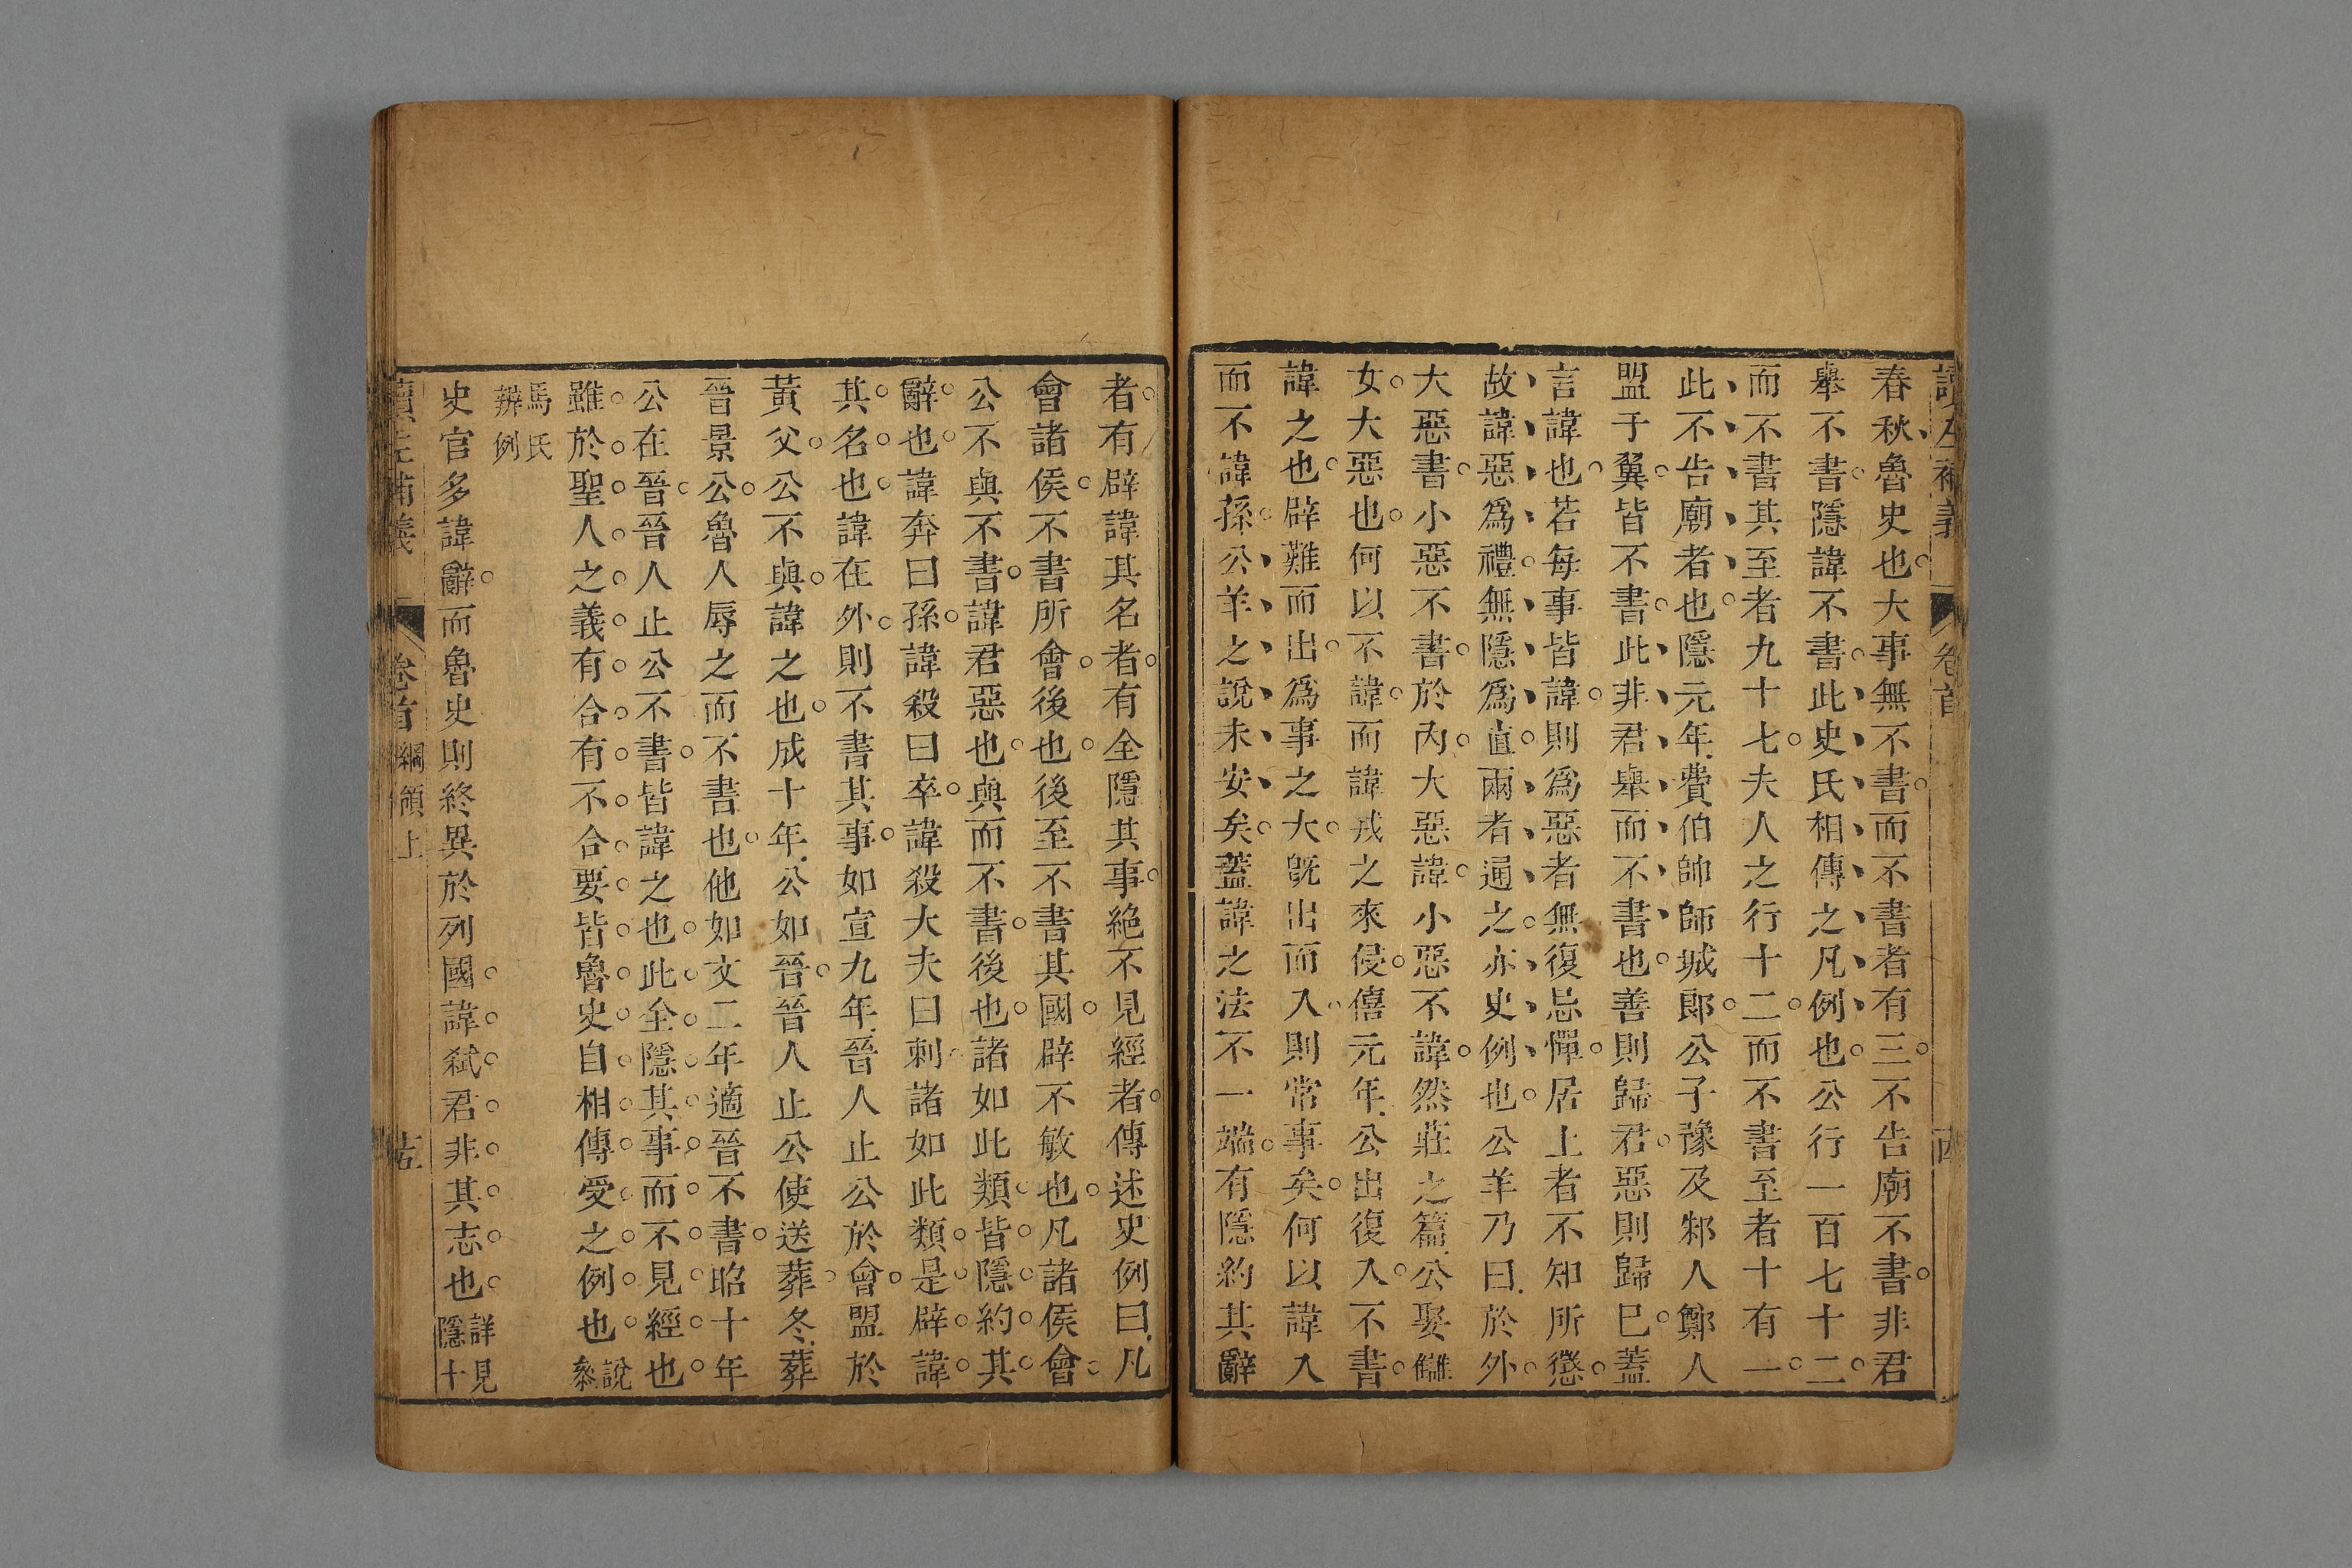 讀左補義 卷首
春秋魯史也大事無不書而不書者有三不告廟不書非君
舉不書隱諱不書此史氏相傳之凡例也公行一百七十二
而不書其至者九十七夫人之行十二而不書至者十有一
此不告廟者也隱元年費伯帥師城郎公子豫及邾人鄭人
盟于翼皆不書此非君舉而不書也善則歸君惡則歸巳蓋
言諱也若每事皆諱則為惡者無復忌憚居上者不知所懲
故諱惡為禮無隱為直兩者通之亦史例也公羊乃曰於外
大惡書小惡不書於內大惡諱小惡不諱然莊之篇公娶讎
女大惡也何以不諱而諱戎之來侵僖元年公出復入不書
諱之也辟難而出為事之大旣出而入則常事矣何以諱入
而不諱孫公羊之說未安矣蓋諱之法不一端有隱約其辭
者有辟諱其名者有全隱其事絶不見經者傳述史例曰凡
會諸侯不書所會後也後至不書其國辟不敏也凡諸侯會
公不與不書諱君惡也與而不書後也諸如此類皆隱約其
辭也諱奔曰孫諱殺曰卒諱殺大夫曰刺諸如此類是辟諱
其名也諱在外則不書其事如宣九年晉人止公於會盟於
黃父公不與諱之也成十年公如晉晉人止公使送葬冬葬
晉景公魯人辱之而不書也他如文二年適晉不書昭十年
公在晉晉人止公不書皆諱之也此全隱其事而不見經也
雖於聖人之義有合有不合要皆魯史自相傳受之例也說參
馬氏辨例
史官多諱辭而魯史則終異於列國諱弒君非其志也詳見隱十
讀左補義 卷首 綱領上